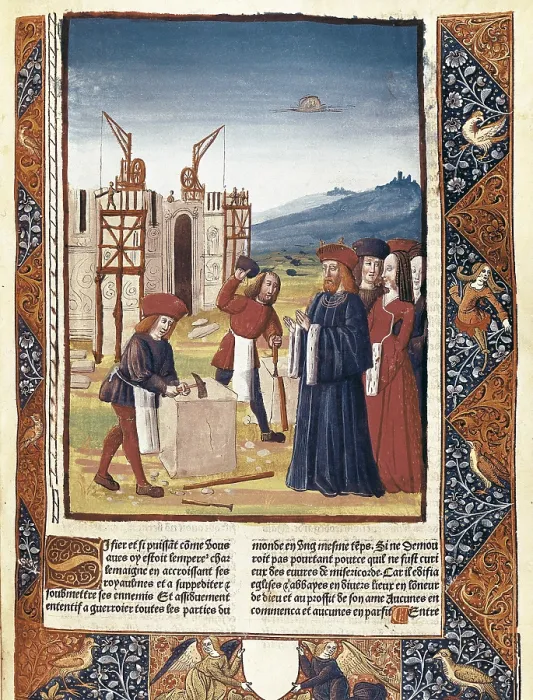 Si fier et si puissāt cōme vous
aues oy estoit lempereꝰ char
lemaigne en accroissant ses
royaulmes et a suppediter ⁊
soubmettre ses ennemis Et assiduement
ententif a guerroier toutes les parties du
monde en vng mesme tēps. Si ne demou
roit pas pourtant pource quil ne fust curi
eux des euures de misericorde. Car il edifia
eglises ⁊ abbayes en diuers lieux en lōneur
de dieu et au proffit de son ame Aucunes en
commenca et aucunes en parfist Entre